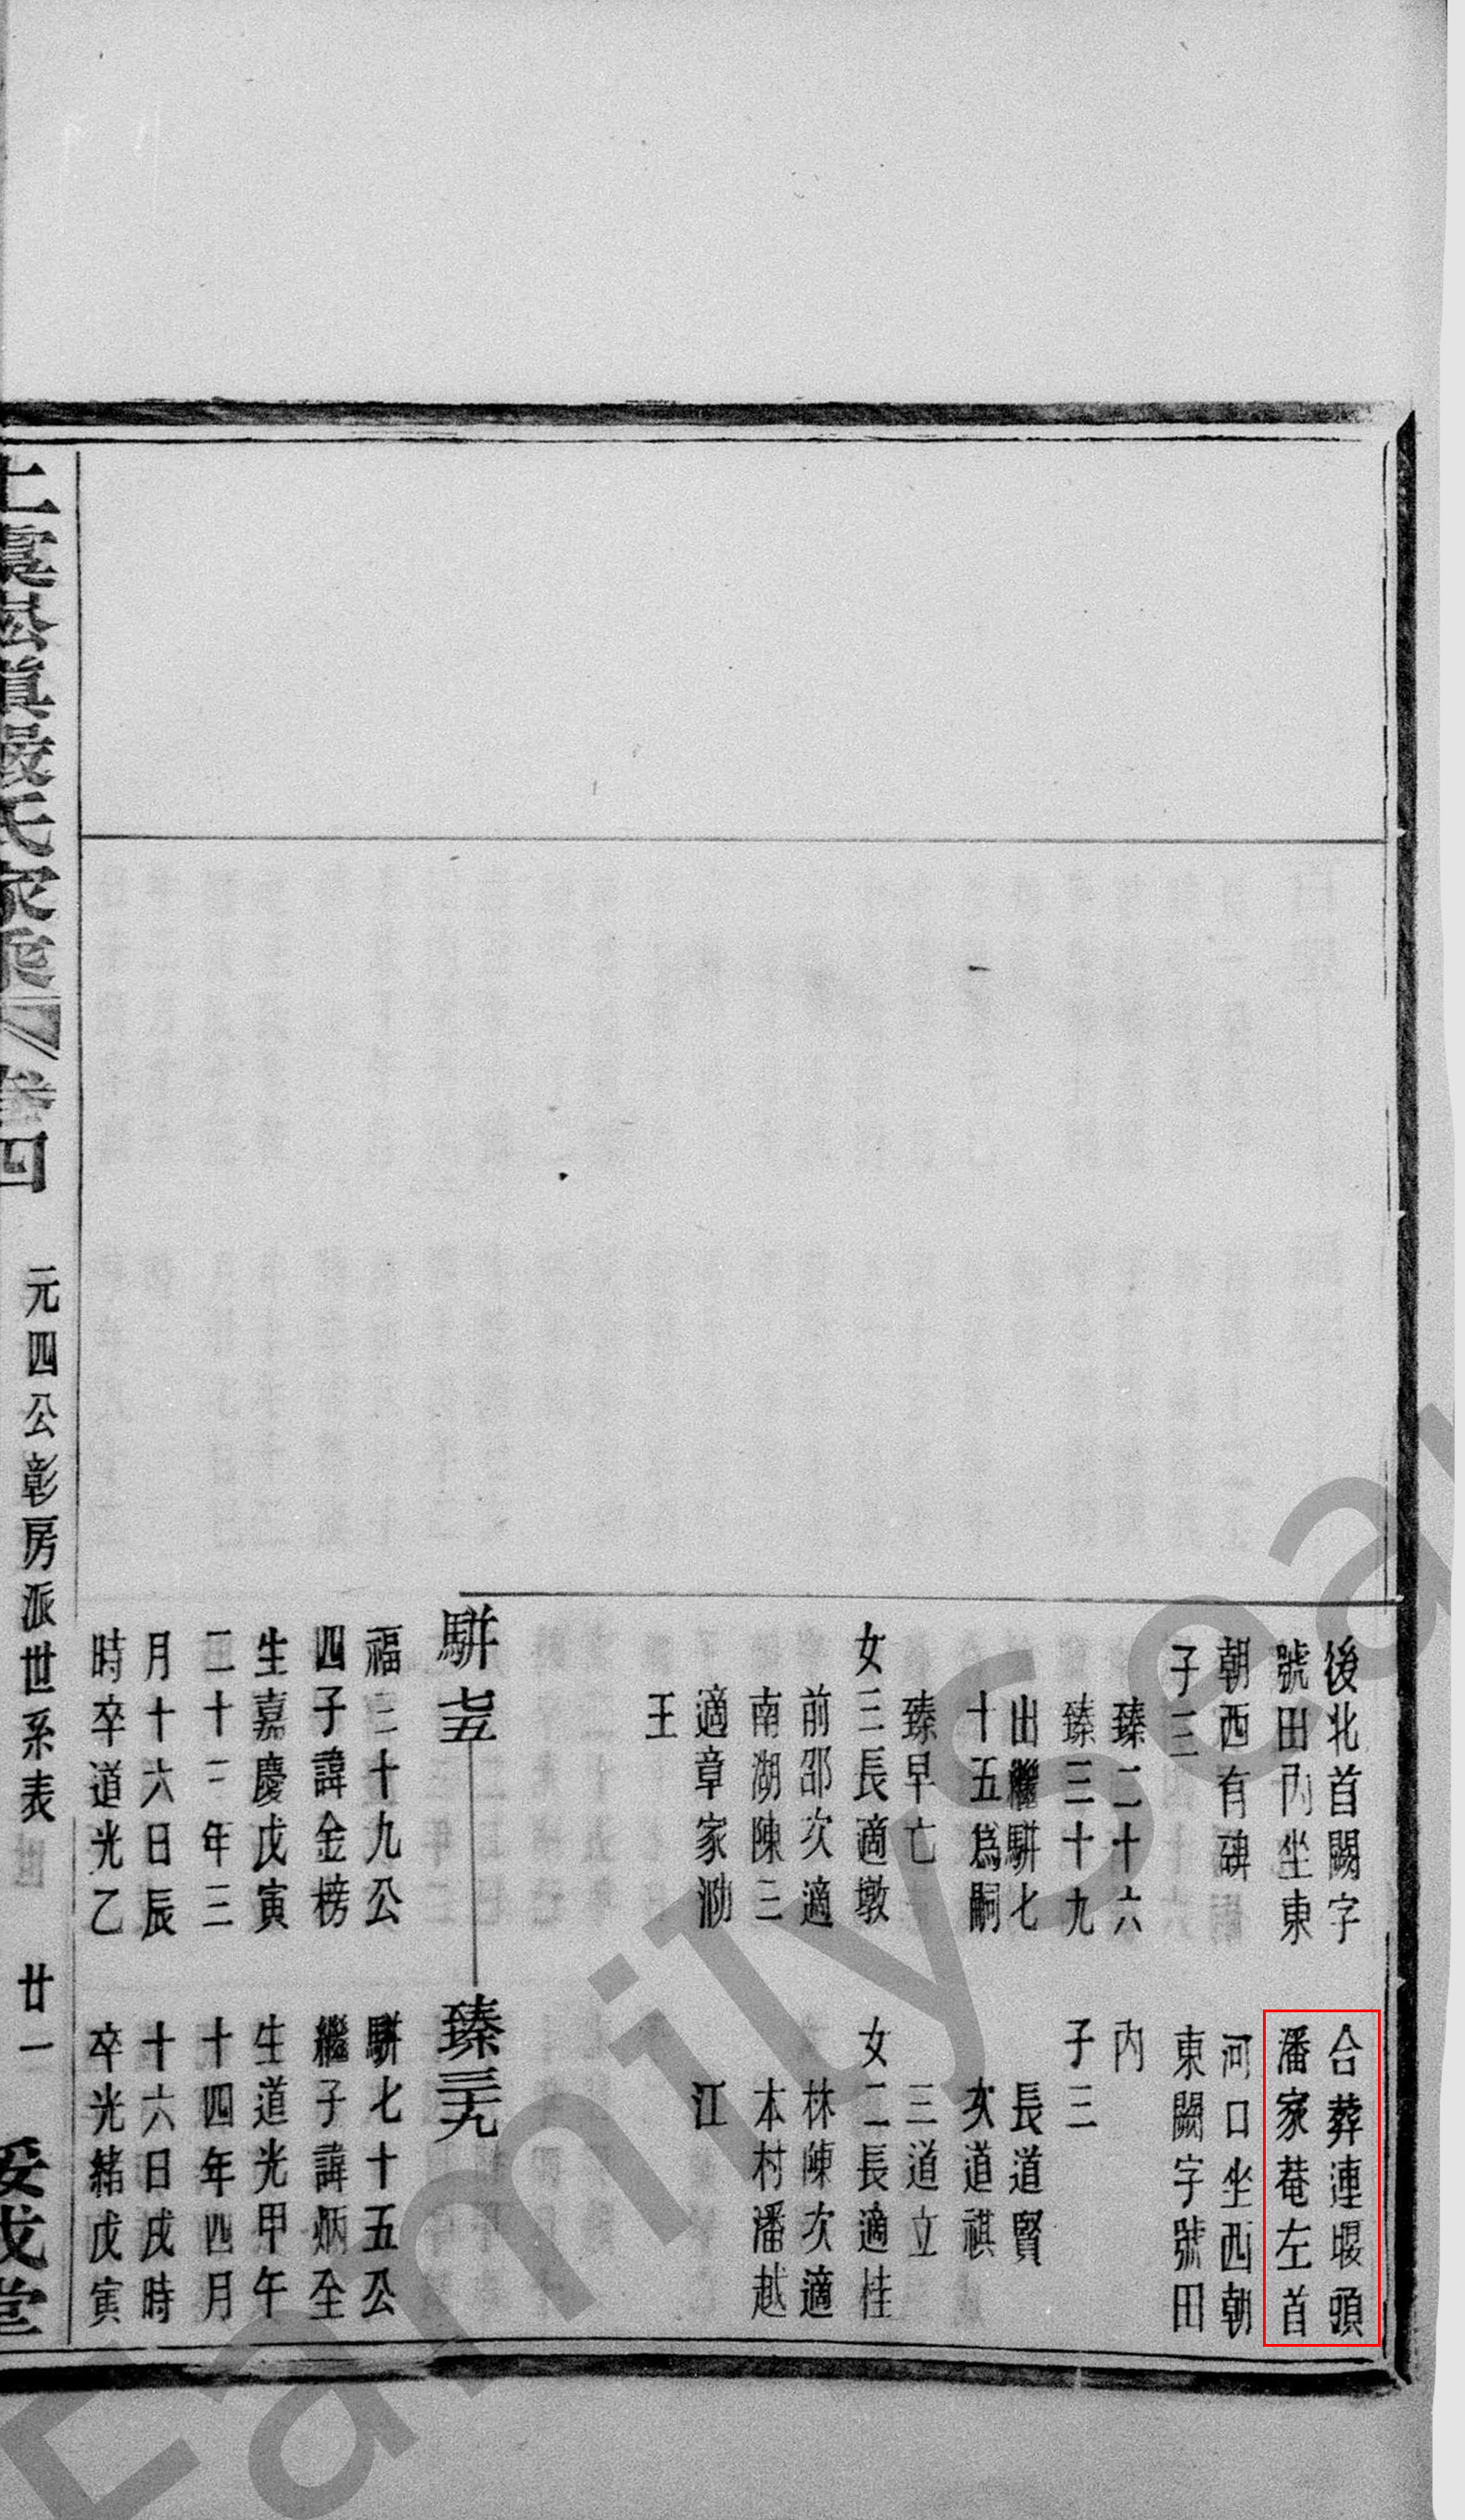 後北首闕字
號田內坐東
朝西有碑
子三
臻二十六
臻三十九
出繼駢七
十五爲嗣
臻早亡
女三長適墩
前邵次適
南湖陳三
適章家泐
王
駢七五
福二十九公
四子諱金榜
生嘉慶戊寅
二十三年三
月十六日辰
時卒道光乙
合葬連堰頭
潘家菴左首
河口坐西朝
東闕字號田
內
子三
長道賢
次道祺
三道立
女二長適桂
林陳次適
本村潘越
江
臻三九
駢七十五公
繼子諱炳全
生道光甲午
十四年四月
十六日戌時
卒光緒戊寅
上虞崧鎮嚴氏家乘 卷四
元四公彰房派世系表
廿一
FamilySea